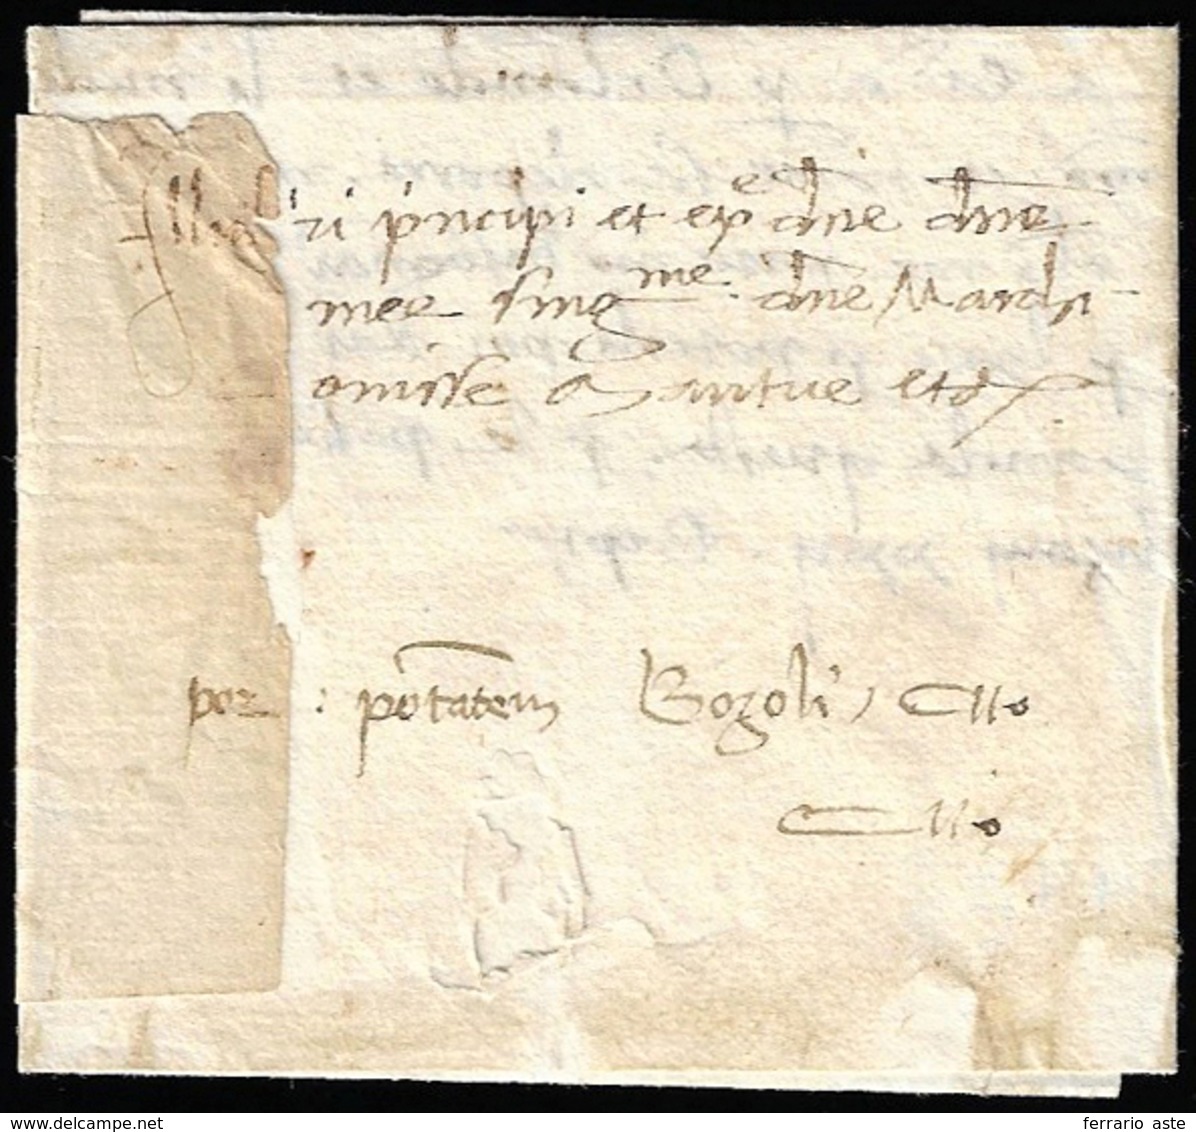 Illustri principi et ex dne dne
mee sing me. dne Marchi-
onisse Mantue etc
por : potatem Bozoli, Cito
Cito
ferrario aste